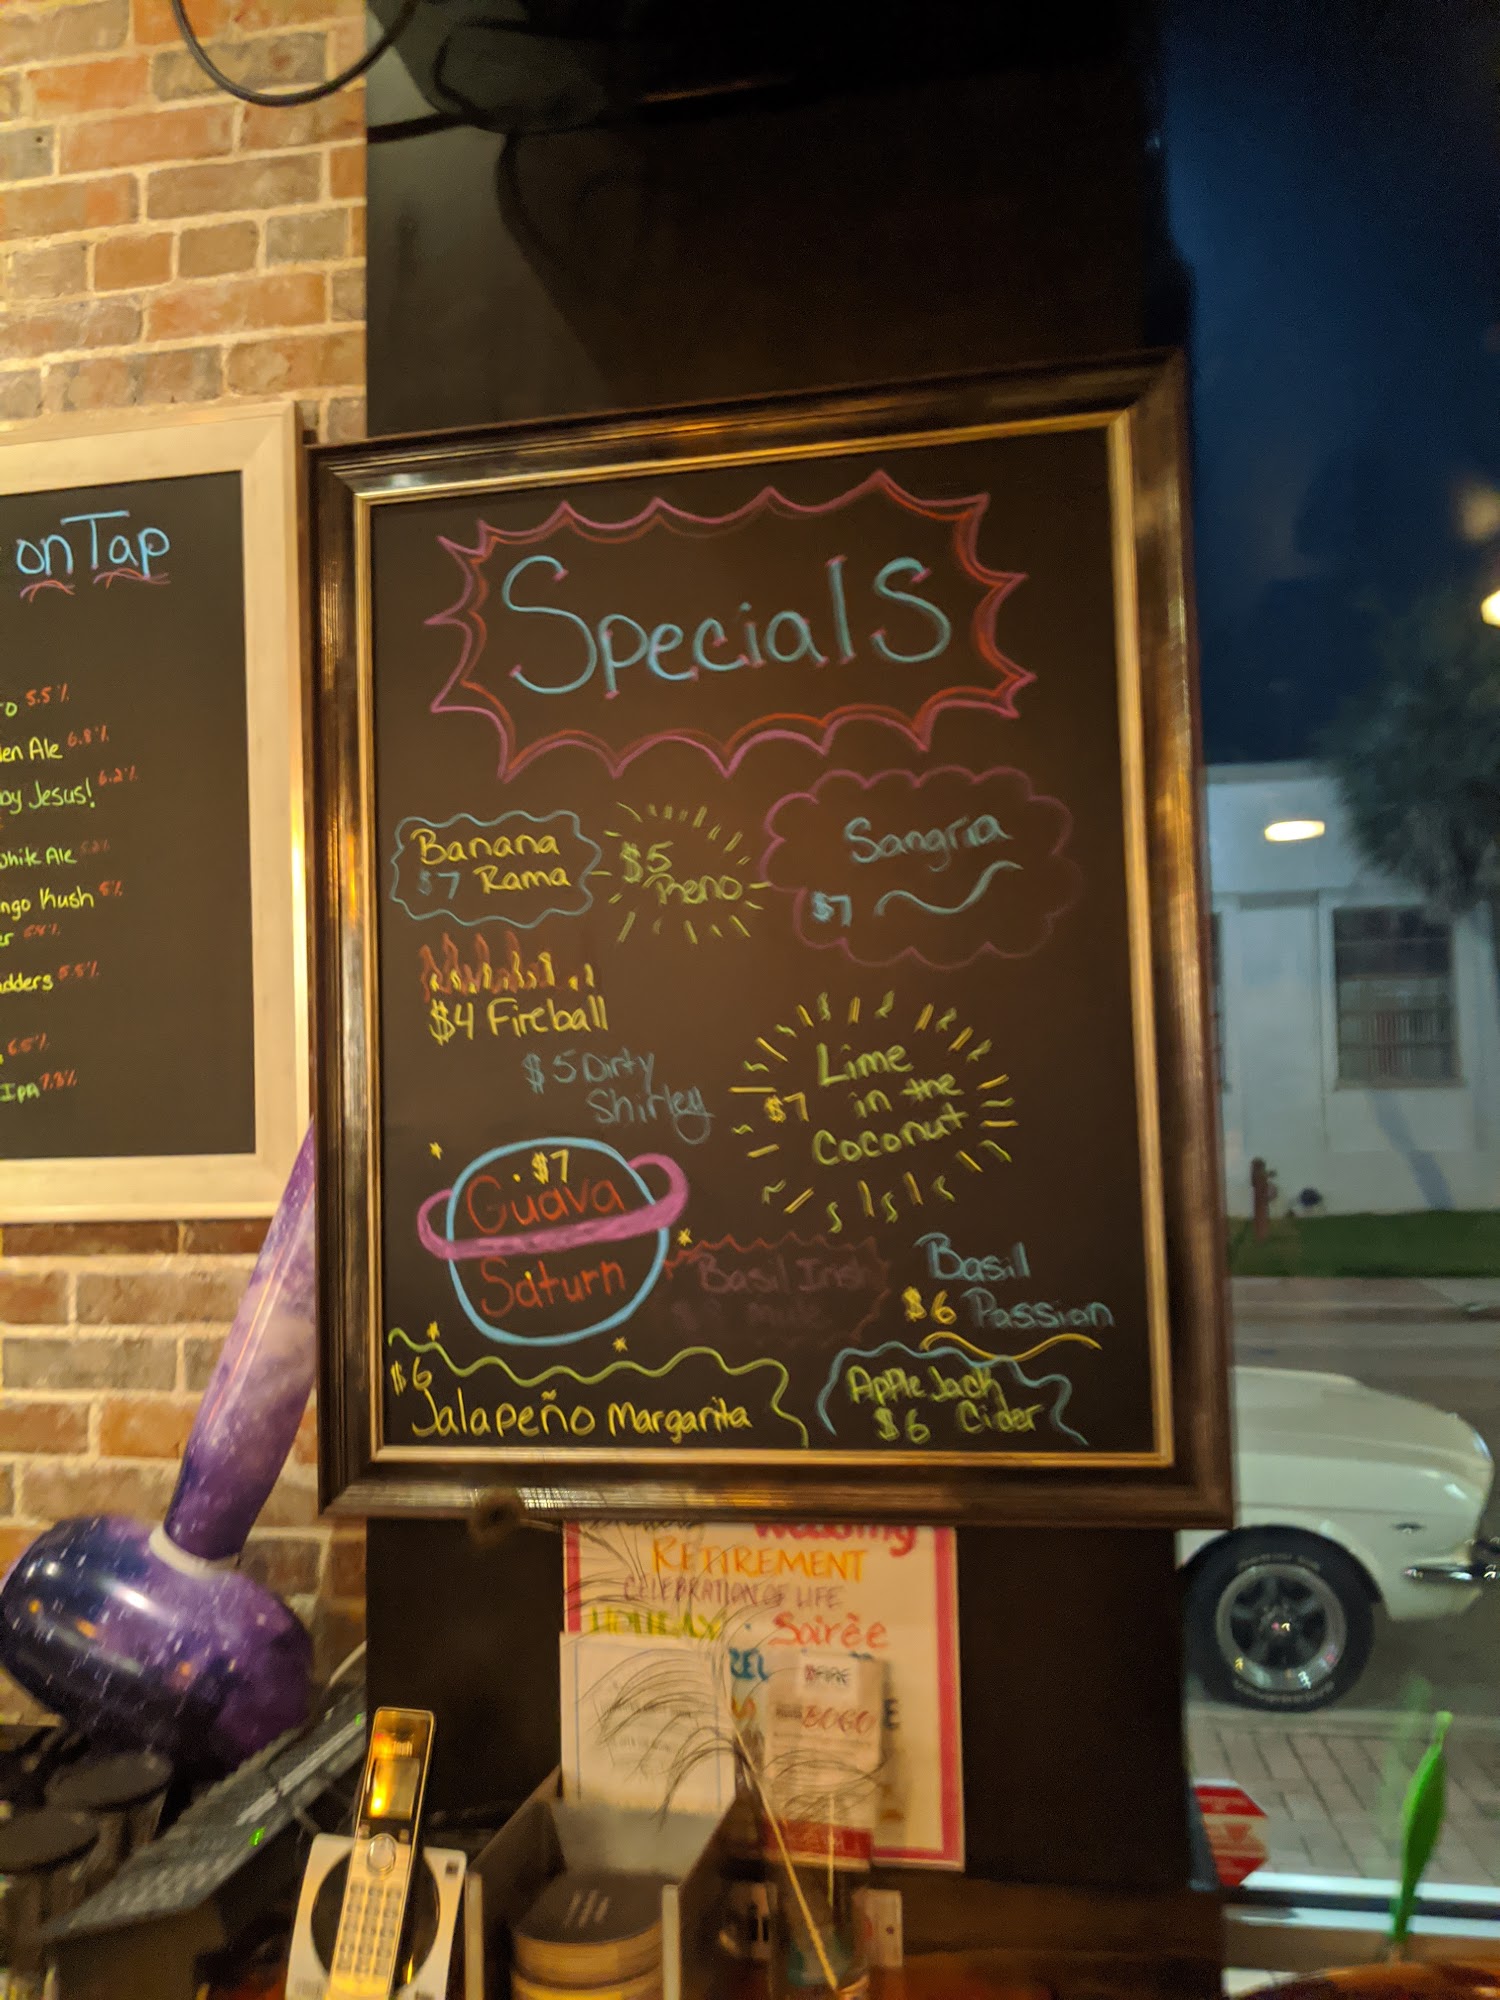 onTap
5.5%
Ale 6.8%
Jesus! 6.2%
White Ale 5.2%
Kush 5%
5.5%
6.5%
Ipa 7.3%
Specials
Banana
$7 Rama
$5
Sangria
$7
$4 Fireball
$5 Dirty
Shirley
Lime
$7 in the
Coconut
$7
Guava
Saturn
Basil Irish
Mule
Basil
$6 Passion
$6
Jalapeño Margarita
Apple Jack
$6 Cider
Wedding
RETIREMENT
CELEBRATION OF LIFE
HOLIDAY
Soirèe
BOGO